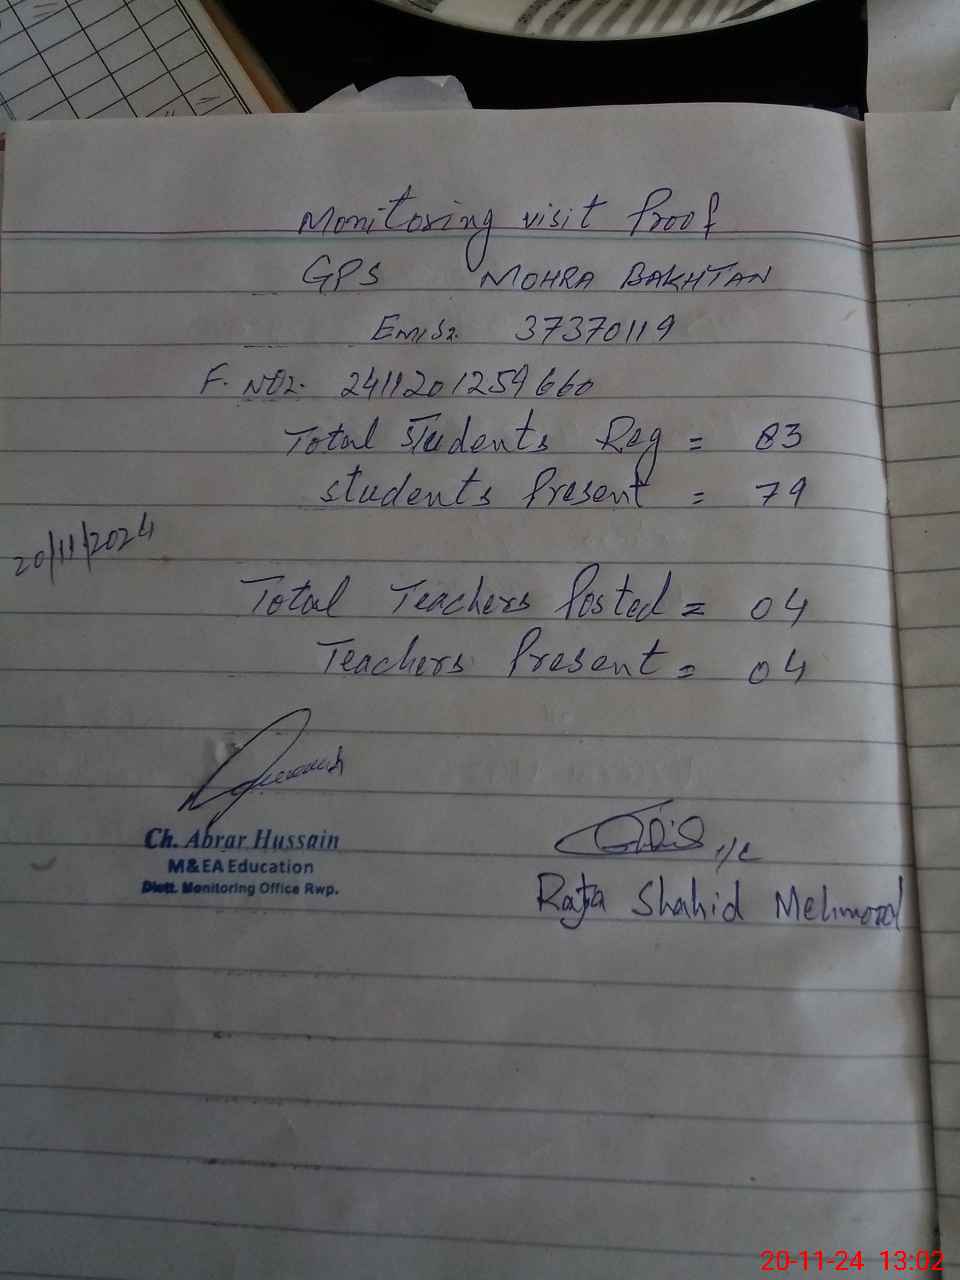 Monitoring visit Proof
GPS MOHRA BAKHTAN
Emis:. 37370119
F. NO:. 241120125
Total Students Reg = 83
Students Present = 79
20/11/2024
Total Teachers Posted = 04
Teachers Present = 04
Ch. Abrar Hussain
M&EA Education
Distt. Monitoring Office Rwp.
I/C
Raja Shahid Mehmood
20-11-24 13:02